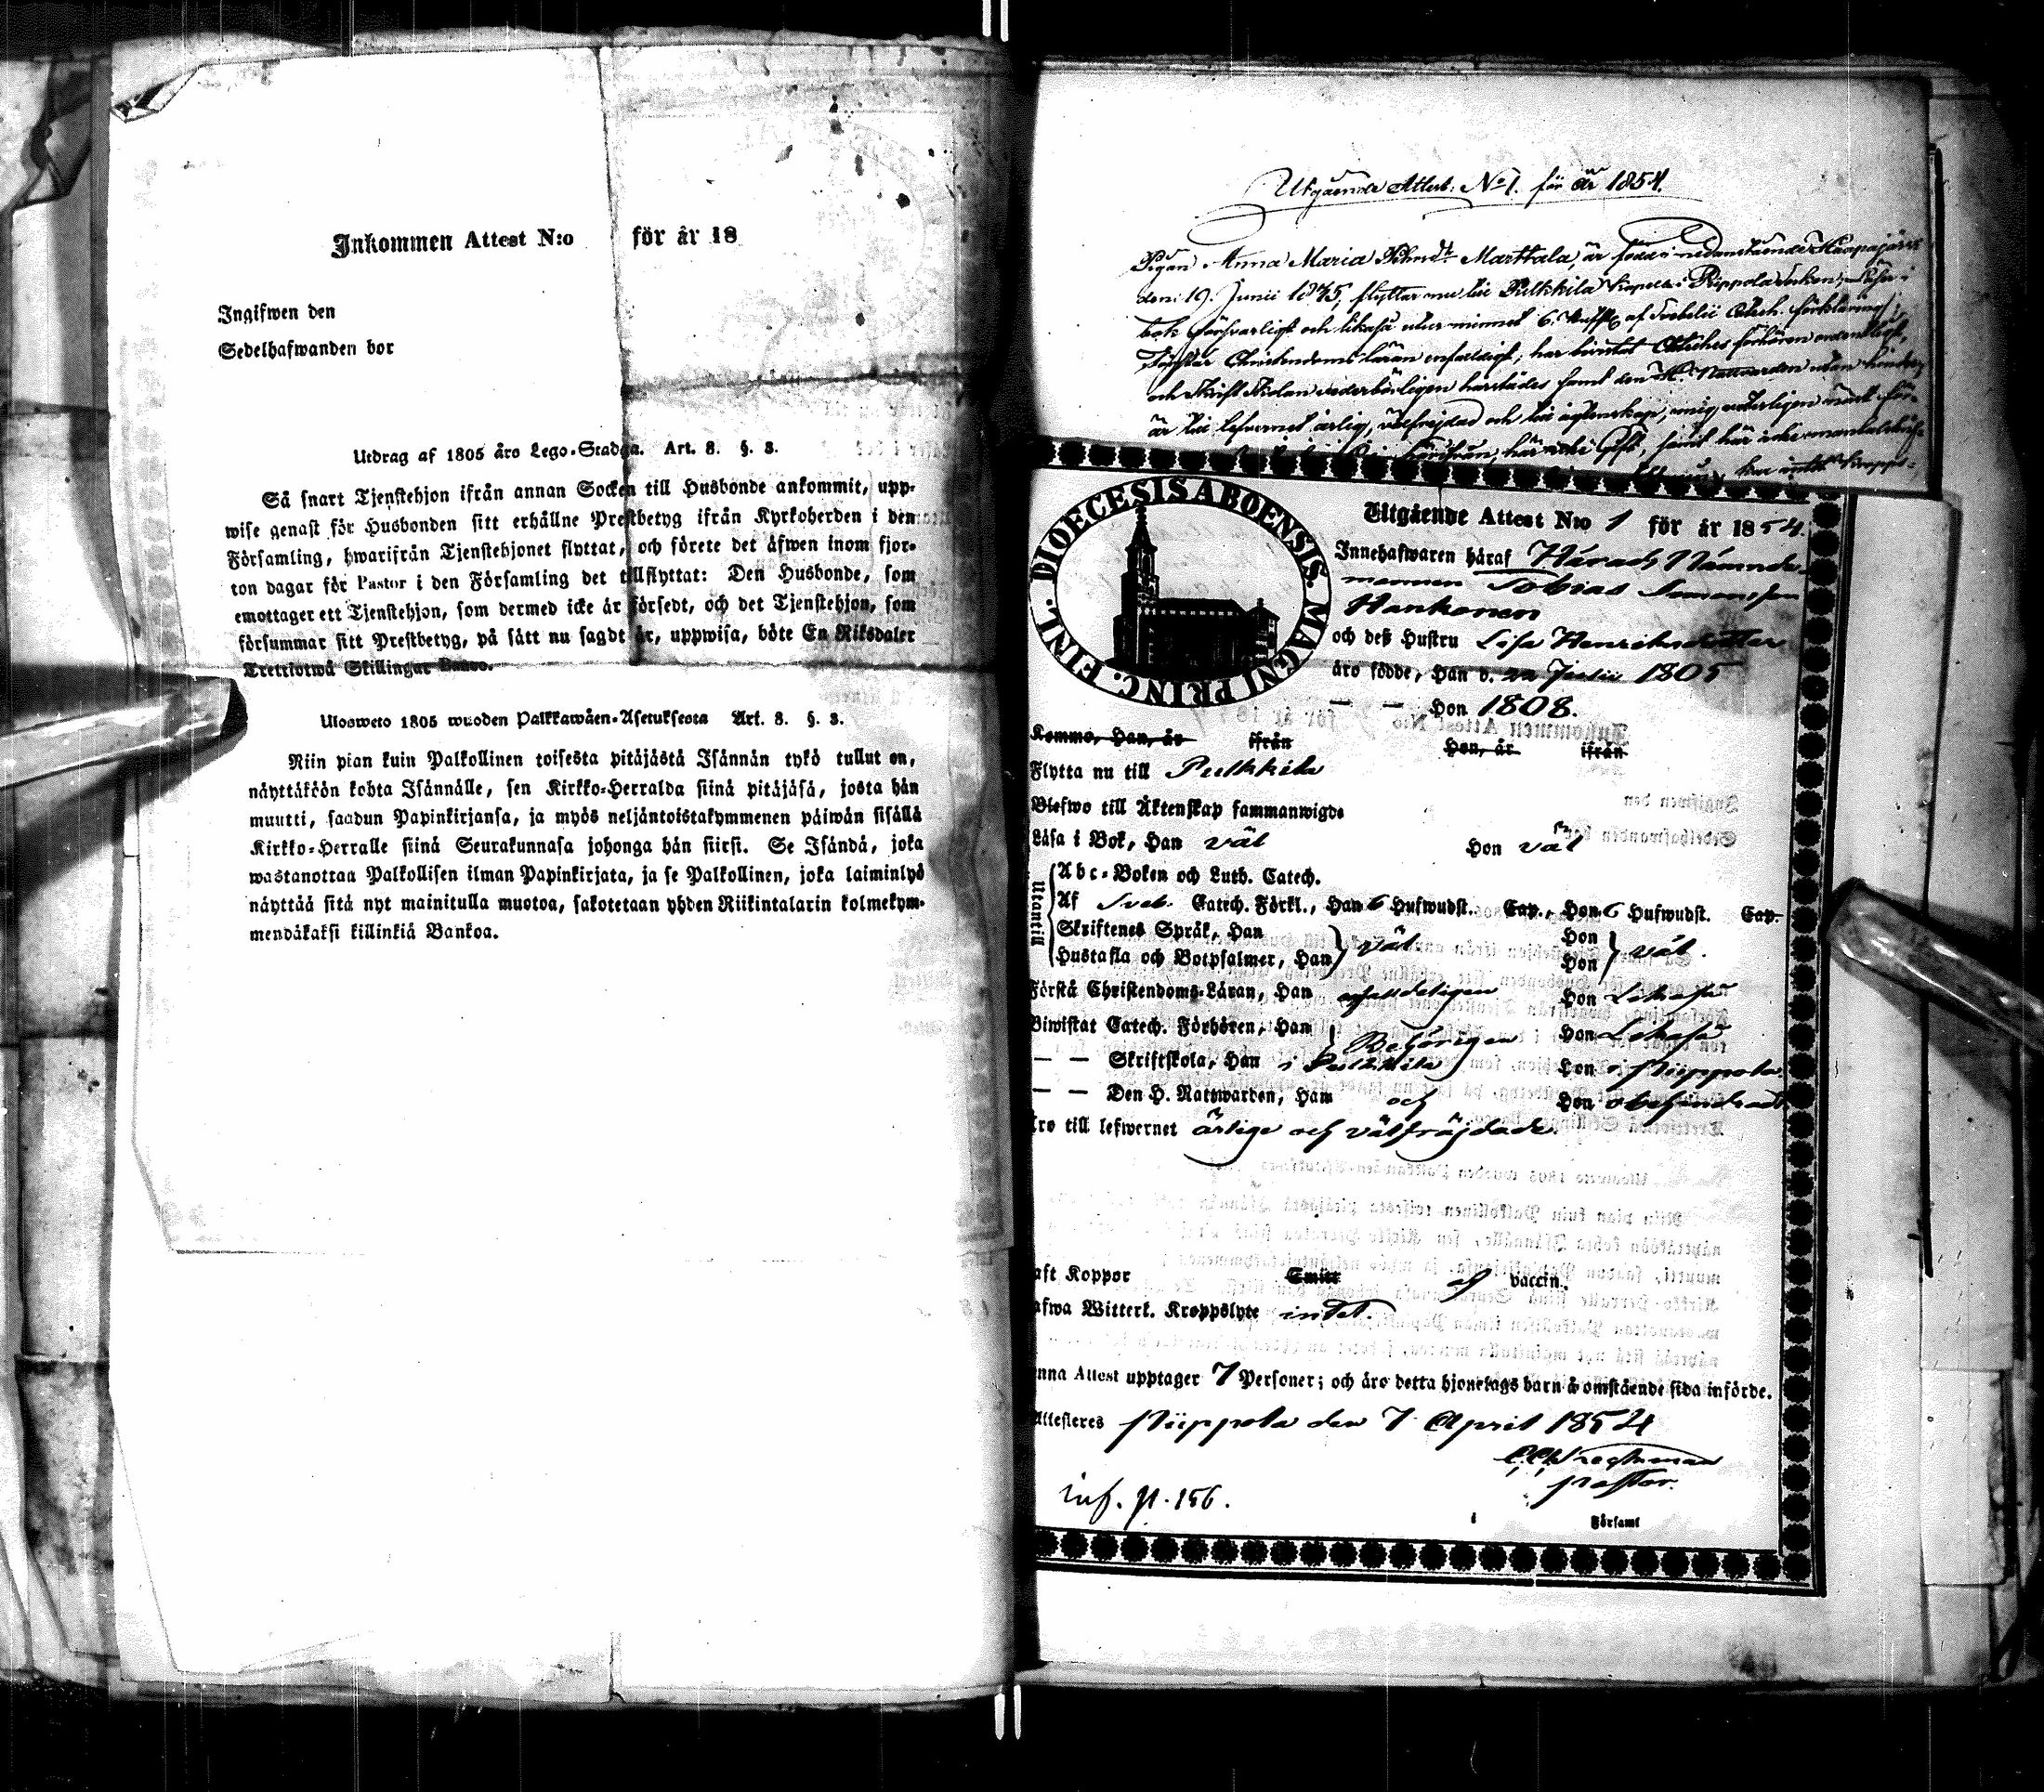 Inkommen Attest N:o för år 18
Ingifwen den
Sedelhafwanden bor
Utdrag af 1805 års Lego-Stadga. Art. 8. §. 3.
Så snart Tjenstehjon ifrån annan Socken till Husbonde ankommit, upp-
wise genast för Husbonden sitt erhållne Prestbetyg ifrån Kyrkoherden i den
Församling, hwarifrån Tjenstehjonet flyttat, och förete det äfwen inom fjor-
ton dagar för Pastor i den Församling det tillflyttat: Den Husbonde, som
emottager ett Tjenstehjon, som dermed icke är försedt, och det Tjenstehjon, som
försummar sitt Prestbetyg, på sätt nu sagdt är, uppwisa, böte En Riksdaler
Trettiotwå Skillingar Banco.
Ulosweto 1805 wuoden Palkkawäen-Asetuksesta Art. 8. §. 3.
Niin pian kuin Palkollinen toisesta pitäjästä Isännän tykö tullut on,
näyttäköön kohta Isännälle, sen Kirkko-Herralda siinä pitäjäsä, josta hän
muutti, saadun Papinkirjansa, ja myös neljäntoistakymmenen päiwän sisällä
Kirkko-Herralle siinä Seurakunnasa johonga hän siirsi. Se Isändä, joka
wastanottaa Palkollisen ilman Papinkirjata, ja se Palkollinen, joka laiminlyö
näyttää sitä nyt mainitulla muotoa, sakotetaan yhden Riikintalarin kolmekym-
mendäkaksi killinkiä Bankoa.
Utgående Attest: No 1. för år 1854.
Pigan Anna Maria Marttala, är född i nedanstående Haapajärvi
den 19. Junii flyttar nu till Pulkkila Capell i Piippola Socken; Läser i
bok försvarligt och likaså utur minnet 6. af Svebelii Catech. förklaring;
Förstår Christendoms läran enfaldigt, har bivistat Catechis förhören ordentligt,
och Skrift Skolan vederbörligen härstädes samt den H. Nattvarden utan hinder,
är till lefvernet ärlig, välfrejdad och till ägtenskap, mig veterligen
DIOECESIS ABOENSIS MAGNI PRINC. FINL.
Utgående Attest N:o 1 för år 1854.
Innehafwaren häraf Härads Nämnde-
mannen Tobias Samonsson
Hankonen
och deß Hustru Lisa Henriksdotter
äro födde, Han d. 22 Julii 1805
— — Hon 1808.
Kommo, Han, år ifrån Hon, år ifrån
Flytta nu till Pulkkila
Blefwo till Äktenskap sammanwigde
Läsa i Bok, Han väl Hon väl
Utantill
Abc-Boken och Luth. Catech.
Af Sveb. Catech. Förkl., Han 6 Hufwudst. Cap., Hon 6 Hufwudst. Cap.
Skriftenes Språk, Han väl Hon väl.
Hustafla och Botpsalmer, Han Hon
Förstå Christendoms-Läran, Han enfaldeligen Hon Likaså
Biwistat Catech. Förhören, Han Behörigen Hon Likaså
— — Skriftskola, Han i Pulkkila Hon i Piippola
— — Den H. Nattwarden, Han och Hon obehindradt
Äro till lefwernet ärlige och välfräjdade.
aft Koppor Smitt af vaccin.
afwa Witterl. Kroppslyte intet.
nna Attest upptager 7 Personer; och äro detta hjonelags barn å omstående sida införde.
Attesteras Piippola den 7 April 1854
Pastor.
inf. p. 156.
Församl